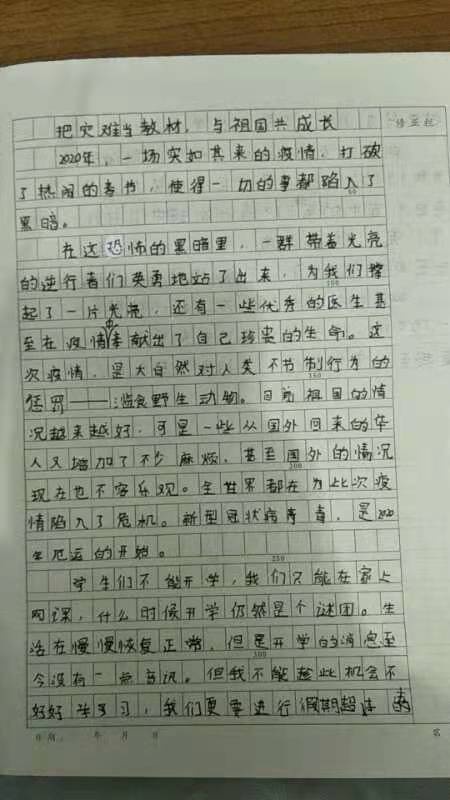 把灾难当教材，与祖国共成长
修正栏
2020年，一场突如其来的疫情，打破
了热闹的春节，使得一切的事都陷入了
黑暗。
在这恐怖的黑暗里，一群带着光亮
的逆行者们英勇地站了出来，为我们撑
100
起了一片光亮，还有一些优秀的医生甚
至在疫情中奉献出了自己珍贵的生命。这
次疫情，是大自然对人类不节制行为的
150
惩罚——滥食野生动物。目前祖国的情
况越来越好，可是一些从国外回来的华
人又增加了不少麻烦，甚至国外的情况
200
现在也不容乐观。全世界都在为此次疫
情陷入了危机。新型冠状病毒，是2020
年厄运的开始。
250
学生们不能开学，我们只能在家上
网课，什么时候开学仍然是个谜团。生
活在慢慢恢复正常，但是开学的消息至
300
今没有一点音讯。但我不能趁此机会不
好好学习，我们更要进行假期超
日期： 年 月 日
第